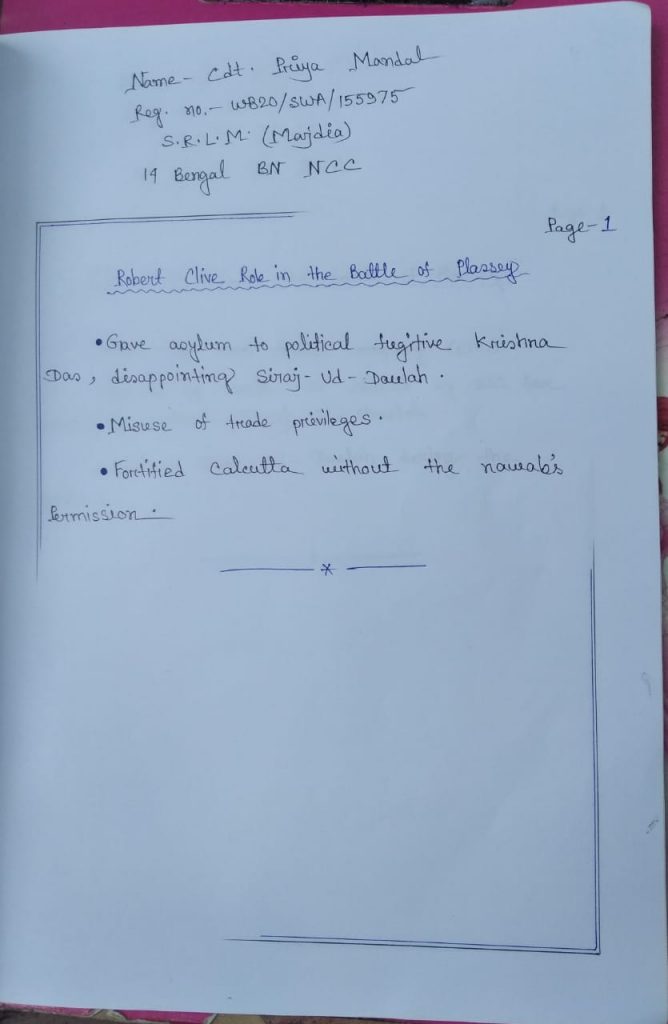 Name - Cdt. Priya Mandal
Reg. no. - WB20/SWA/155975
S.R.L.M. (Majdia)
19 Bengal BN NCC
Page-1
Robert Clive Role in the Battle of Plassey
• Gave asylum to political fugitive Krishna
Das, disappointing Siraj-Ud-Daulah.
• Misuse of trade previleges.
• Fortified Calcutta without the nawab's
Permission.